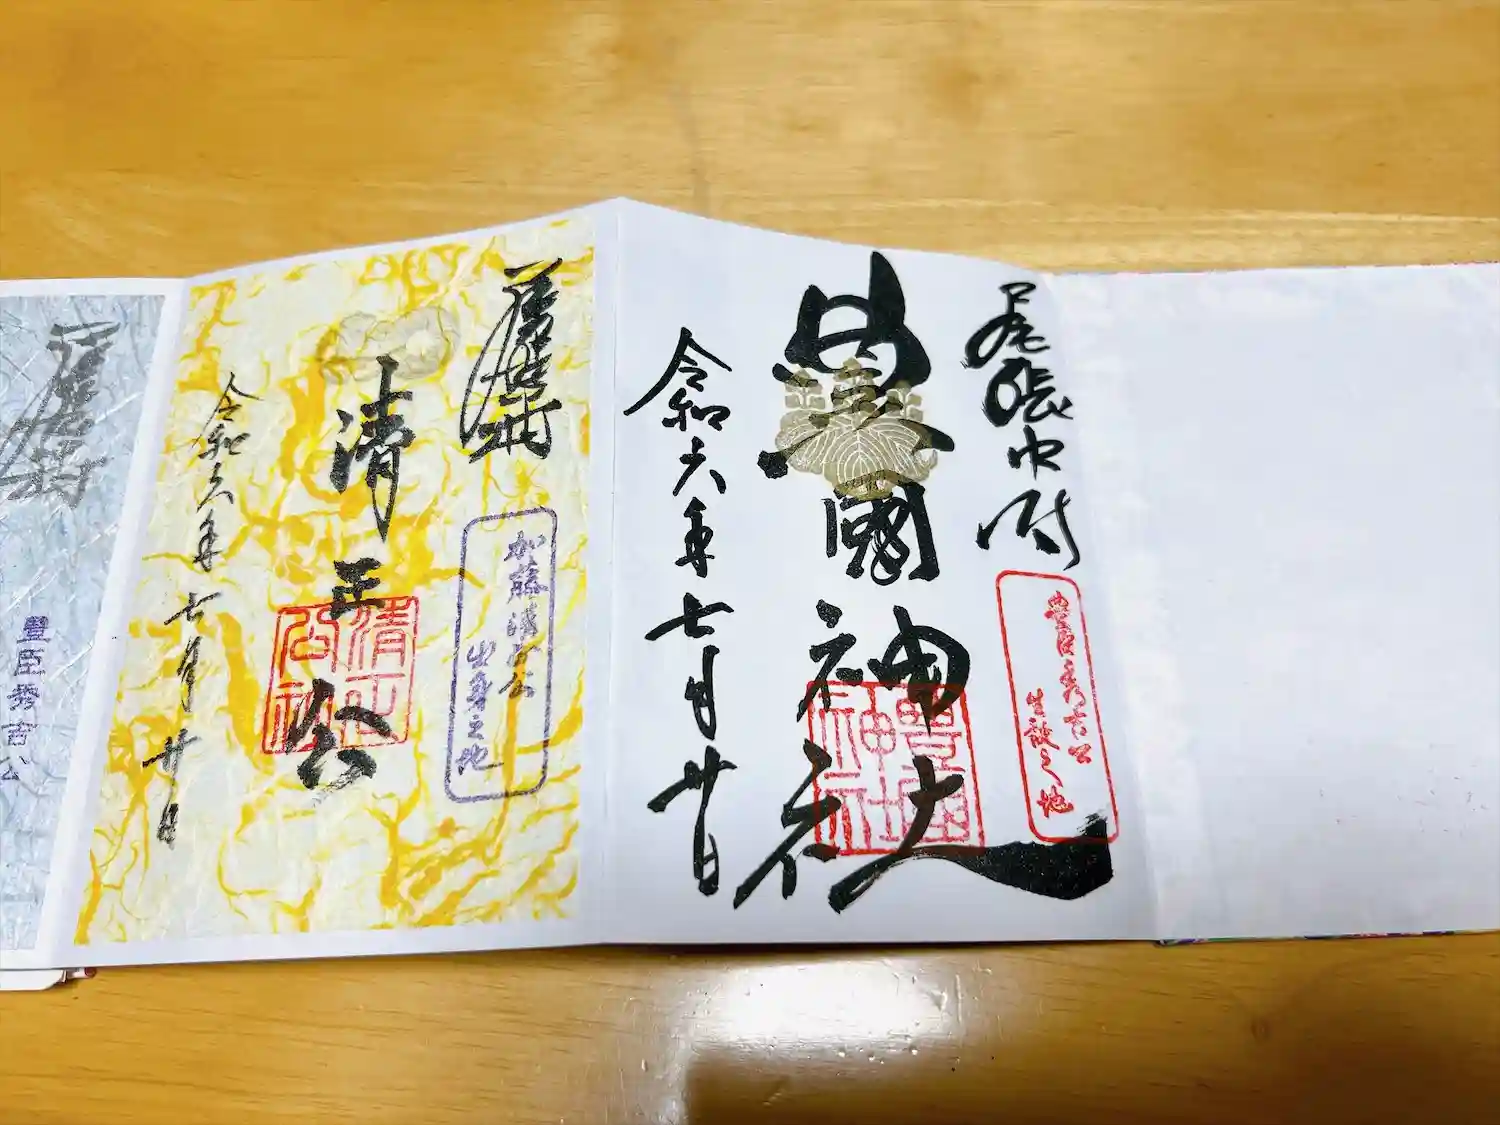 尾張中村
豊臣秀吉公
生誕之地
豊國神社
豊國
神社
令和六年七月廿日
加藤清正公
出身之地
清正公
清正
公社
令和六年七月廿日
豊臣秀吉公